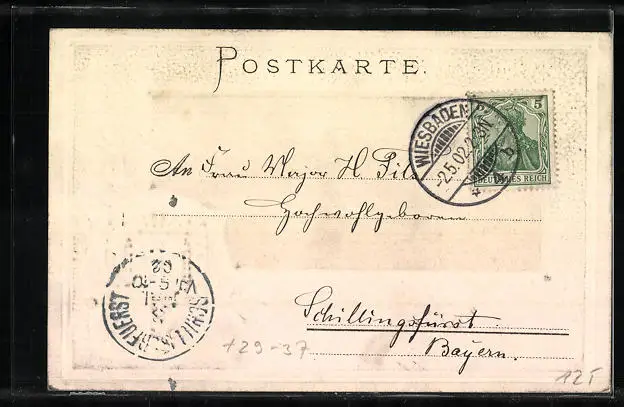 POSTKARTE.
5
DEUTSCHES REICH
WIESBADEN
-2.5.02.
An Frau Major H.
Hochwohlgeboren
SCHILLINGSFUERST
02
Schillingsfürst
Bayern.
+29-37
12T